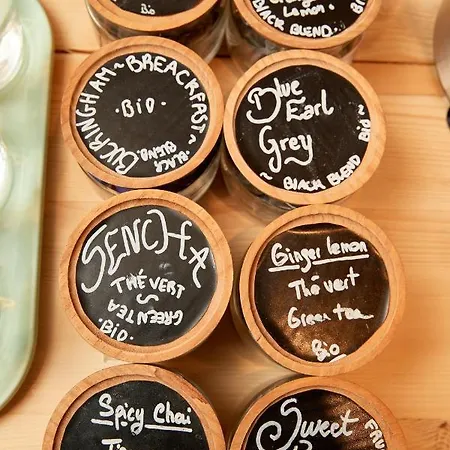 Bio
Lemon
BLACK BLEND
BUCKINGHAM ~ BREACKFAST ~
· BIO ·
· BLACK BLEND ·
Blue
Earl
Grey
~ BLACK BLEND BIO ~
SENCHA
THÉ VERT
~
GREEN TEA
· BIO ·
Ginger lemon
Thé vert
Green tea
Bio
Spicy Chai
Sweet